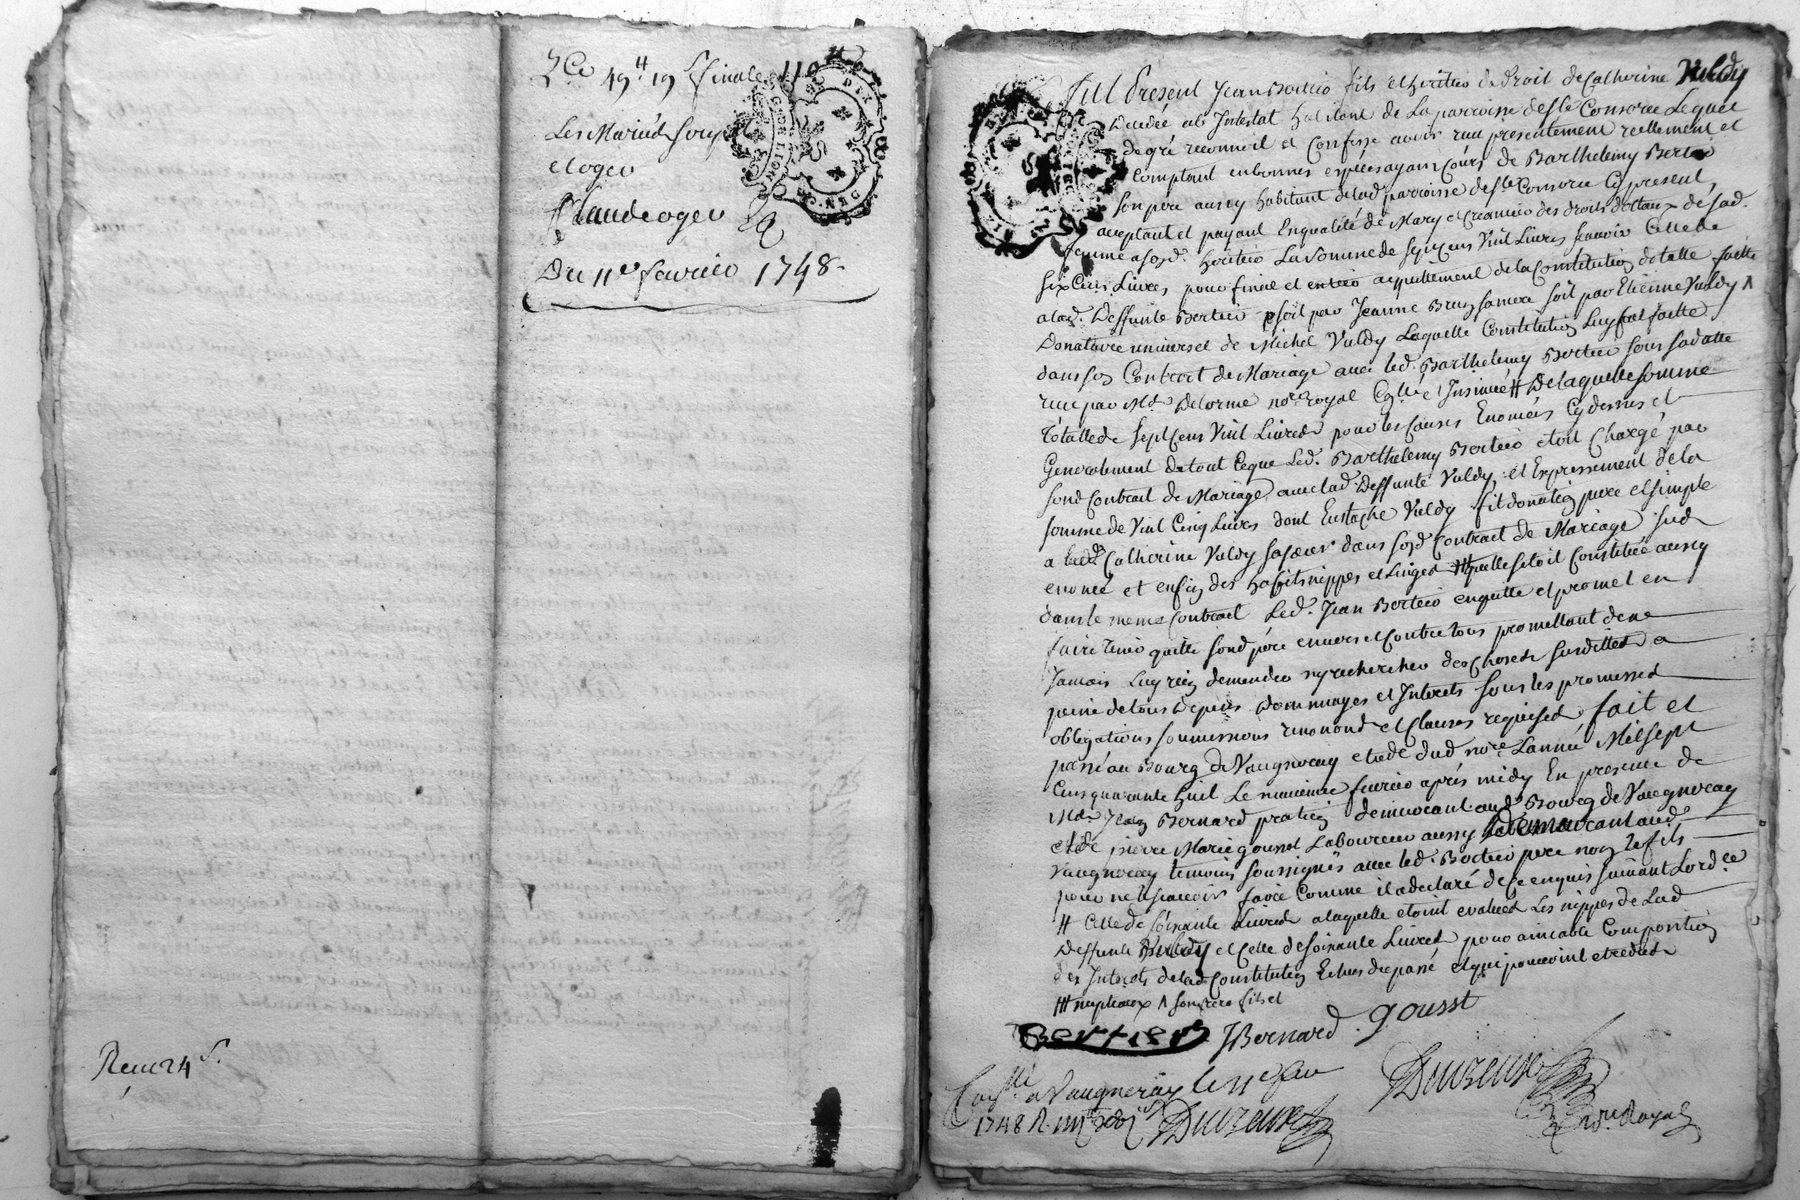 Qce 49ᴸᵗ 19 s finale 110
Les Mariéd
et oger
Claude oger
Du 11e fevrier 1748.
Receu 24 s.
Fut Present Jean Bertier fils et heritier de droit de Catherine Valdy
Decedée ab Intestat habitant de La parroisse de Ste Consorce Lequel
de gré reconnoit et Confesse avoir receu presentement reellement et
Comptant en bonnes espèces ayant Cours de Barthelemy Bertier
son père aussy habitant de lad parroisse de Ste Consorce Cy present
acceptant et payant En qualité de Mary et Creancier des droits dotaux de sad.
femme a sond. heritier La Somme de sept Cens Vint Livres scavoir Celle de
six Cens Livres pour final et entier acquittement de la Constitution dotalle faitte
a lad. Deffunte Bertier soit par Jeanne sa mere soit par Etienne Valdy ^
Donataire universel de Michel Valdy Laquelle Constitution Luy fut faitte
dans son Contract de Mariage avec led. Barthelemy Bertier sous sa datte
receu par Md Delorme nore royal Collé et Insinué # De laquelle somme
totalle de Sept Cens Vint Livres pour les Causes Enoncées Cydessus et
Generalement de tout Ceque Led. Barthelemy Bertier etoit Chargé par
sond Contract de Mariage avec lad Deffunte Valdy, et Expressement de la
somme de Vint Cinq Livres dont Eustache Valdy fit donation pure et simple
a lad. Catherine Valdy sa soeur dans sond Contract de Mariage sud
enoncé et enfin des habits nippes et Linges ### quelle setoit Constituée aussy
dans le meme Contract Led. Jean Bertier en quitte et promet en
faire tenir quitte sond père envers et Contre tous promettant de ne
Jamais Luy rien demender ny rechercher des Choses susdittes a
peine de tous Depens Dommages et Interets sous les promesses
obligations soumissions renonond et Clauses requises fait et
passé au Bourg de Vaugneray etude dud nore Lannée Mil sept
Cens quarante huit Le onzieme fevrier après midy En presence de
Md Jean Bernard praticien demeurant aud Bourg de Vaugneray
et de pierre Marie gousst Laboureur aussy demeurant aud
Vaugneray temoins soussignés avec led. Bertier pere non Le fils
pour ne le scavoir faire Comme il a declaré de Ce enquis suivant Lordce
# Celle de soixante Livres a laquelle etoint evaluées Les nippes de Lad
Deffunte Valdy et Celle de soixante Livres pour amiable Composition
des Interets de lad Constitution Echus du passé et qui pouvoint etre deus
### nuptiaux ^ son frere fils et
Bertier JBernard gousst
Duvreuse
Collé a Vaugneray le 11e fev
1748 R.
Duvreuse
nore Royal